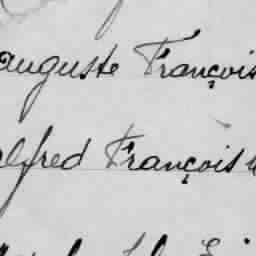 auguste François
alfred François